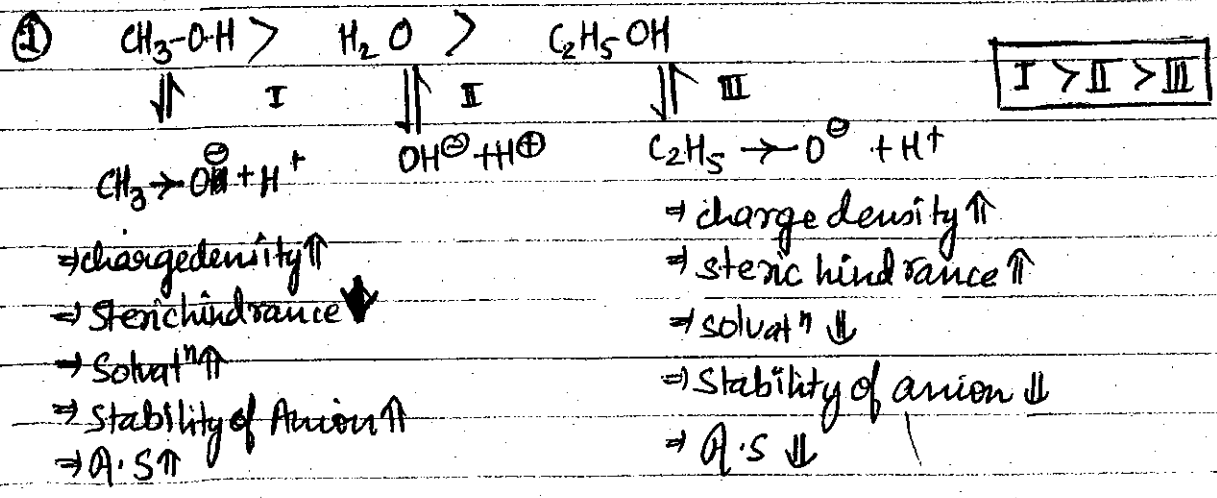 ① CH₃-O-H > H₂O > C₂H₅OH
⇌ I ⇌ II ⇌ III
I > II > III
CH₃→O⊖ + H⁺ OH⊖ + H⊕ C₂H₅→O⊖ + H⁺
⇒ charge density ⇑
⇒ Steric hindrance ⬇
⇒ Solvatⁿ ⇑
⇒ Stability of Anion ⇑
⇒ A.S ⇑
⇒ charge density ⇑
⇒ steric hindrance ⇑
⇒ solvatⁿ ⇓
⇒ Stability of anion ⇓
⇒ A.S ⇓